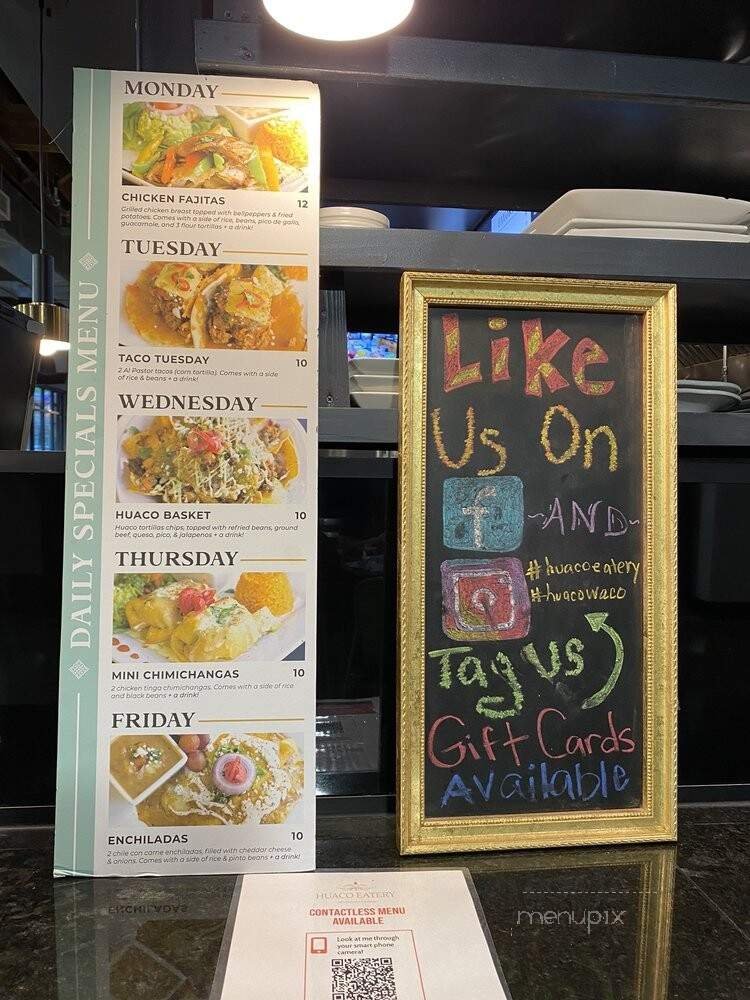 DAILY SPECIALS MENU
MONDAY
CHICKEN FAJITAS 12
Grilled chicken breast topped with bellpeppers & fried
potatoes. Comes with a side of rice, beans, pico de gallo,
guacamole, and 3 flour tortillas + a drink!
TUESDAY
TACO TUESDAY 10
2 Al Pastor tacos (corn tortilla). Comes with a side
of rice & beans + a drink!
WEDNESDAY
HUACO BASKET 10
Huaco tortillas chips, topped with refried beans, ground
beef, queso, pico, & jalapenos + a drink!
THURSDAY
MINI CHIMICHANGAS 10
2 chicken tinga chimichangas. Comes with a side of rice
and black beans + a drink!
FRIDAY
ENCHILADAS 10
2 chile con carne enchiladas, filled with cheddar cheese
& onions. Comes with a side of rice & pinto beans + a drink!
Like
Us On
f ~AND~
#huacoeatery
#huacowaco
Tag us
Gift Cards
Available
HUACO EATERY
CONTACTLESS MENU
AVAILABLE
Look at me through
your smart phone
camera!
menupix